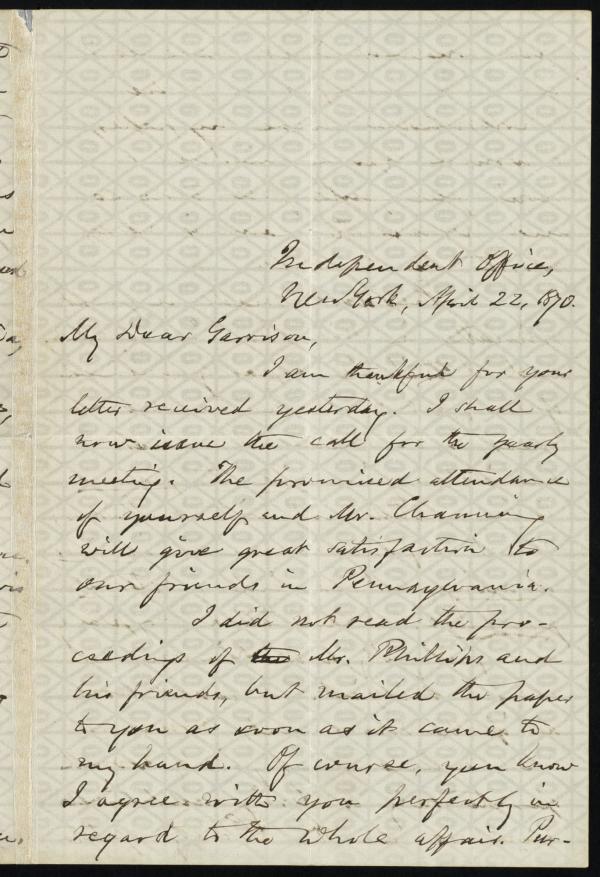 Independent Office,
New York, April 22, 1870.
My Dear Garrison,
I am thankful for your
letter received yesterday. I shall
now issue the call for the yearly
meeting. The promised attendance
of yourself and Mr. Channing
will give great satisfaction to
our friends in Pennsylvania.
I did not read the pro-
ceedings of the Mr. Phillips and
his friends, but mailed the paper
to you as soon as it came to
my hand. Of course, you know
I agree with you perfectly in
regard to the whole affair. Pur-